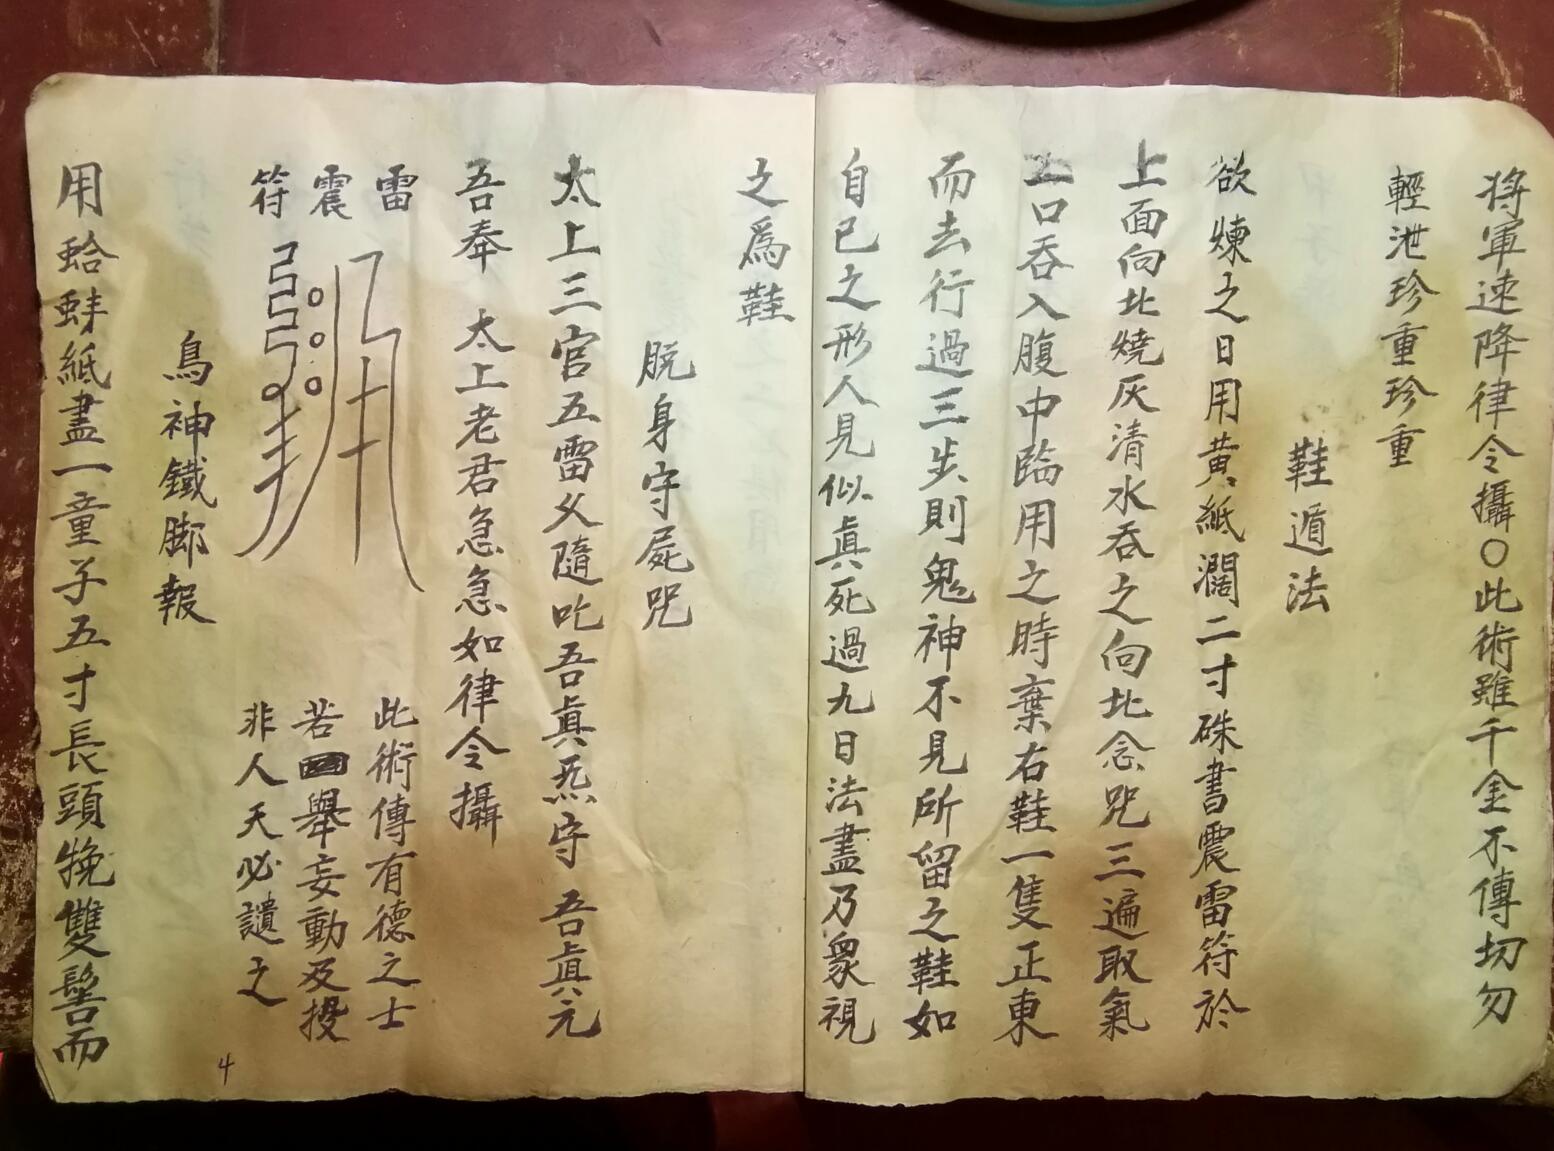 將軍速降律令攝〇此術雖千金不傳切勿
輕泄珍重珍重
鞋遁法
欲煉之日用黃紙濶二寸硃書震雷符於
上面向北燒灰清水吞之向北念咒三遍取氣
口吞入腹中臨用之時棄右鞋一隻正東
而去行過三步則鬼神不見所留之鞋如
自己之形人見似眞死過九日法盡乃衆視
之爲鞋
脫身守屍咒
太上三官五雷 隨吃吾眞炁守 吾眞元
吾奉 太上老君急急如律令攝
雷
震
符
此術傳有德之士
若舉妄動及授
非人天必譴之
鳥神鐵脚報
用蛤蚌紙畫一童子五寸長頭挽雙髻而
4